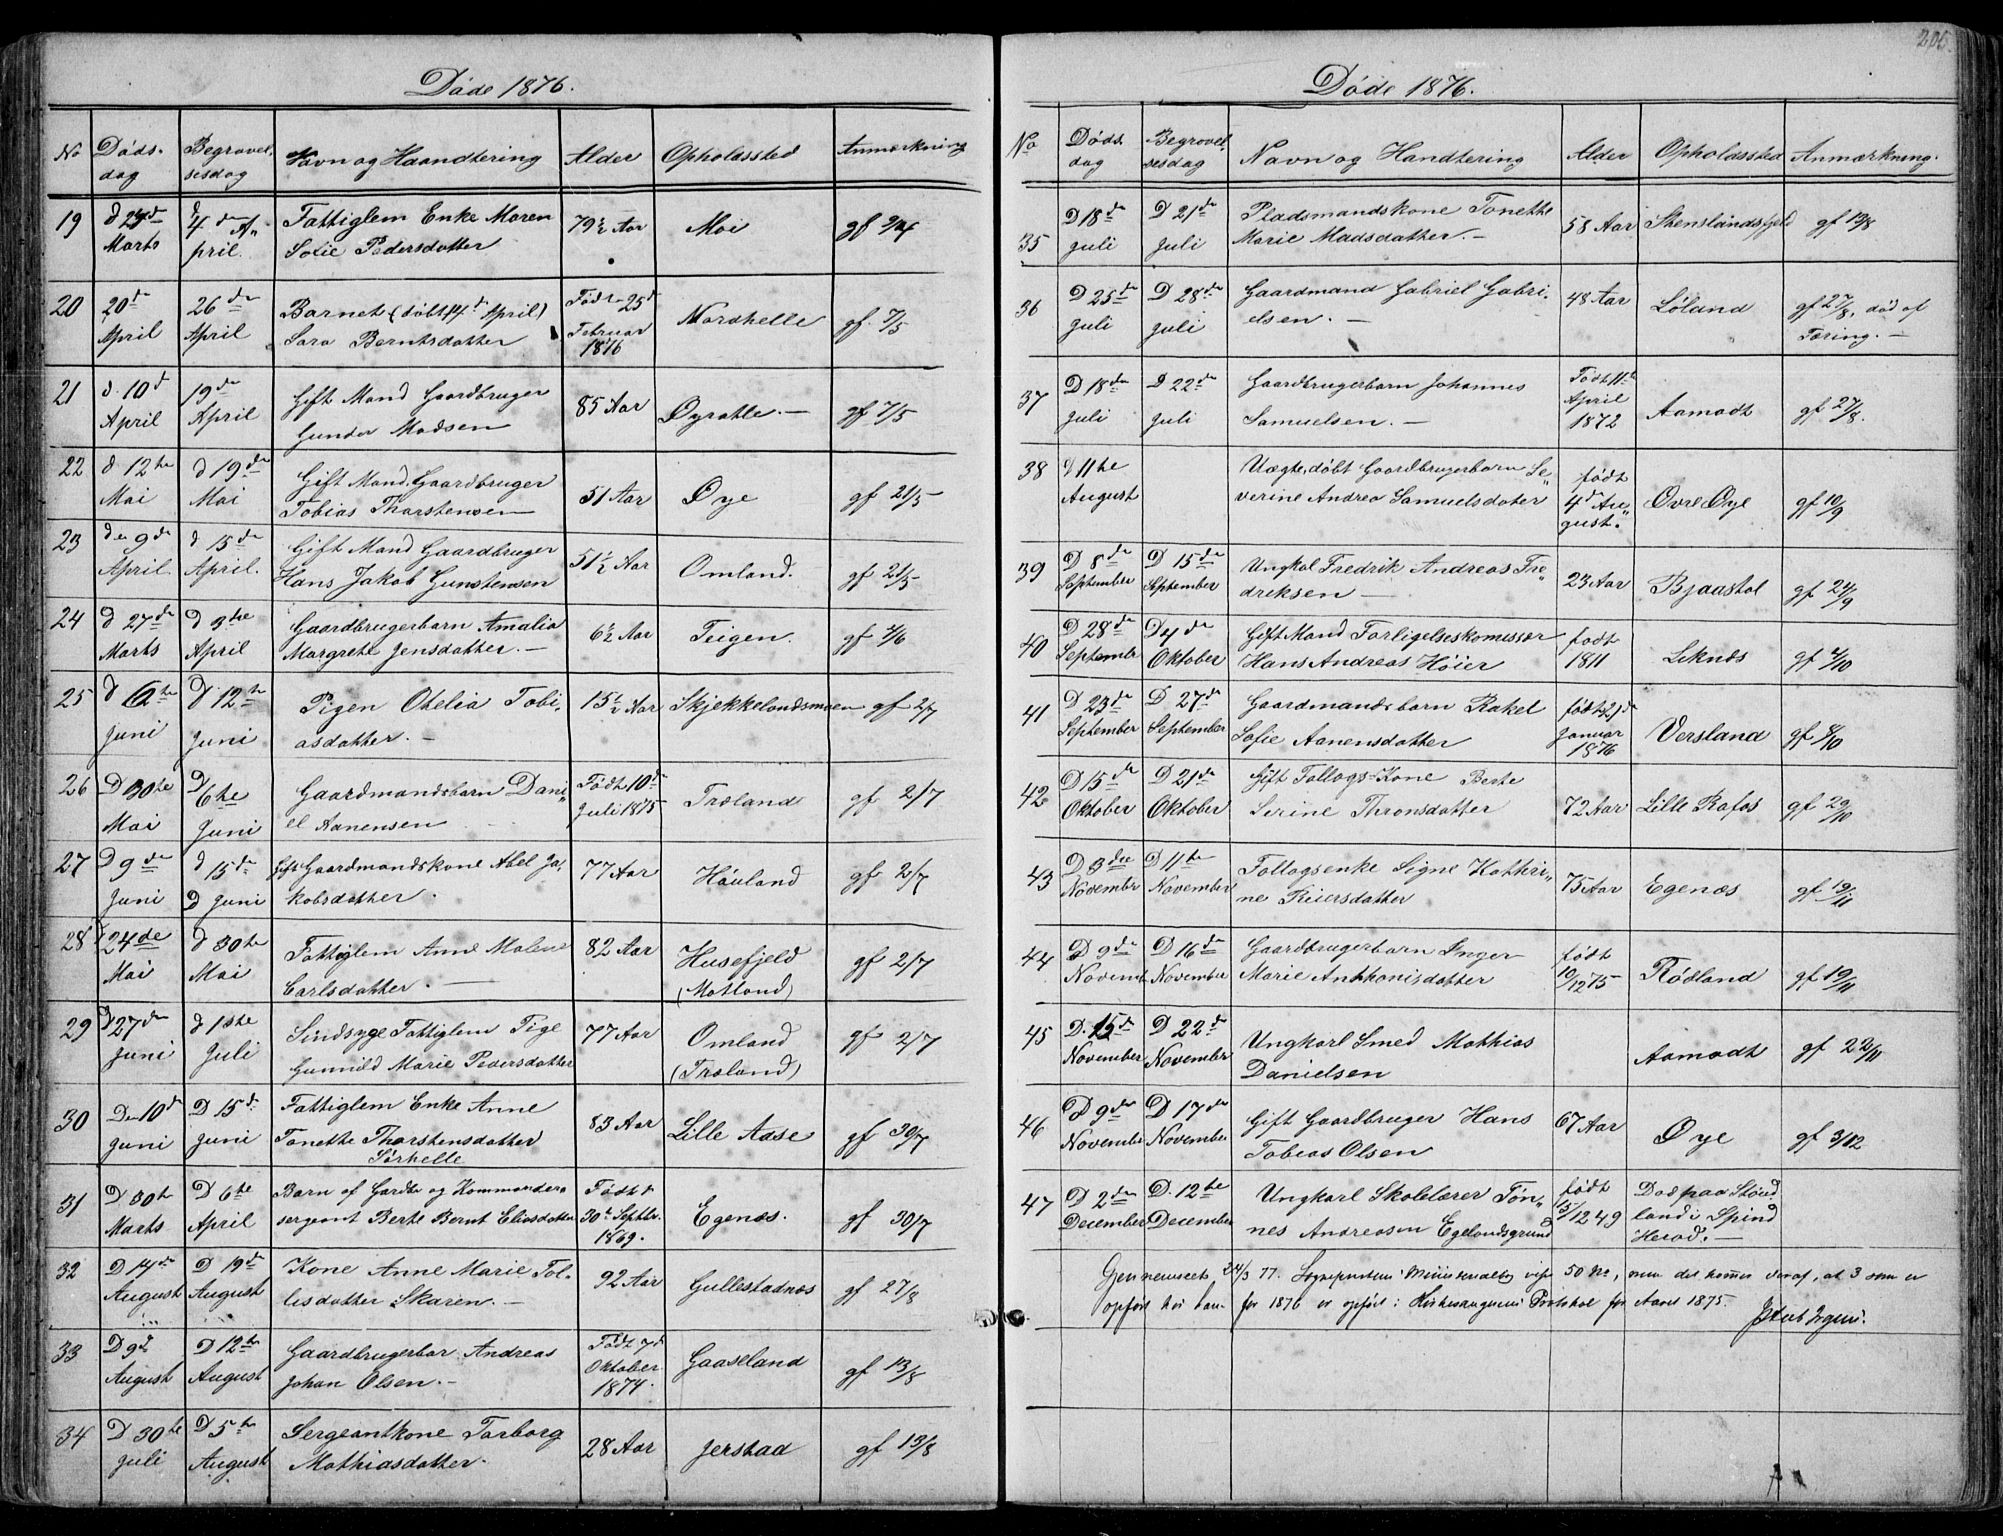 206
Døde 1876.
No Døds-dag Begravel-sesdag Navn og Haandtering Alder Opholdssted Anmærkning
19 d Marts d 4de A-pril. Fattiglem Enke Maren Sofie Pedersdatter 79½ Aar Moi gf
20 20de April 26de April Barnet (døbt 14d April) Sara Berntsdatter Født 25d Februar 1876 Nordhelle gf. 7/5
21 d. 10d April 19de April Gift Mand Gaardbruger Gunder Madsen 85 Aar Dyratle.— gf 7/5
22 d 12te Mai d 19de Mai Gift Mand, Gaardbruger Tobias Thorstensen 51 Aar Øye gf 21/5
23 den 9de April d 15de April. Gift Mand Gaardbruger Hans Jakob Gunstensen 51½ Aar Omland. gf 21/5
24 d 27de Marts d 9the April Gaardbrugerbarn Amalia Margrete Jensdatter.— 6½ Aar Teigen. gf 4/6
25 d 6te Juni d 12te Juni Pigen Otelia Tobi-asdatter.— 15½ Aar Skjekkelandsmoen gf 2/7
26 D 30te Mai D 6te Juni Gaardmandsbarn Dani-el Aanensen Født 10de Juli 1875 Træland gf 2/7
27 D 9de Juni d 15de Juni Gift Gaardmandskone Abel Ja-kobsdatter. 77 Aar Høuland gf 2/7
28 24de Mai d 30te Mai Fattiglem Anne Malene Carlsdatter.— 82 Aar Husefjeld (Motland) gf 2/7
29 D 27de Juni d 1ste Juli Sindsyge Fattiglem Pige Gunnild Marie Pedersdatter 77 Aar Omland (Træland) gf 2/7
30 Den 10d Juni D 15d Juni Fattiglem Enke Anne Tonette Thorstensdatter Sørhelle 83 Aar Lille Aase gf 30/7
31 D 30te Marts D 6te April Barn af Gardbr og Kommander-sergeant Berte Bernt Eliasdatter Født 30te Septbr. 1869. Egenæs. gf 30/7
32 D 14de August D 19de August Kone Anne Marie Tol-lisdatter Skaren.— 92 Aar Gullestadnæs gf 27/8
33 D 9d August D 12te August Gaardbrugerbar Andreas Johan Olsen.— Født 7d Oktober 1874. Gaaseland gf 13/8
34 D 30te Juli D 5te August Sergeantkone Torborg Mathiasdatter. 28 Aar Jerstad gf 13/8
Døde 1876.
No Døds dag Begravel-sesdag Navn og Handtering Alder Opholdssted Anmærkning.
35 D 18de Juli D 21de Juli Pladsmandskone Tonette Marie Madsdatter.— 58 Aar Stenslandsfjeld gf 13/8
36 D 25de Juli D 28de Juli Gaardmand Gabriel Gabri-elsen.— 48 Aar Løland gf 27/8, død af Tæring.—
37 D 18de Juli D 22de Juli Gaardbrugerbarn Johannes Samuelsen.— Født 11te April 1872 Aamodt gf 27/8.
38 d 11te August Uægte, døbt Gaardbrugerbarn Se-verine Andrea Samuelsdater født 4de Au-gust. Øvre Øye gf 10/9
39 D 8de September D 15de September Ungkal Fredrik Andreas Fre-driksen— 23 Aar Bjaastol gf 24/9
40 D 28de Septembr D 4de Oktober Gift Mand Forligelseskomissær Hans Andreas Høier født 1811 Leknes gf 4/10
41 D 23de September D 27de September Gaardmandsbarn Rakel Sofie Aanensdatter født 21d Januar 1876 Versland gf 8/10
42 D 15de Oktober D 21de Oktober Gift Follogs-Kone Berte Serine Thronsdatter 72 Aar Lille Rafos gf 29/10
43 D 3die Novembr D 11te November Follogsenke Signe Kathri-ne Reiersdatter 75 Aar Egenæs gf 19/11
44 D 9de Novemb D 16de November Gaardbrugerbarn Inger Marie Anthonisdatter født 10/12 75 Rødland gf 19/11
45 D. 15de November D 22de November Ungkarl Smed Mathias Danielsen Aamodt gf 22/11
46 D 9de November D 17de November Gift Gaardbruger Hans Tobias Olsen 67 Aar Øye gf 3/12
47 D 2den December D. 12te December Ungkarl Skolelærer Tøn-nes Andreasen Egelandsgrund født 15/12 49 Død paa Stønd land i Spind Herad.—
Gjennemseet 24/3 77. vise 50 No, men det kommer deraf, at 3 som er
opført her for 1876 er opført i Protokol for Aaret 1875.